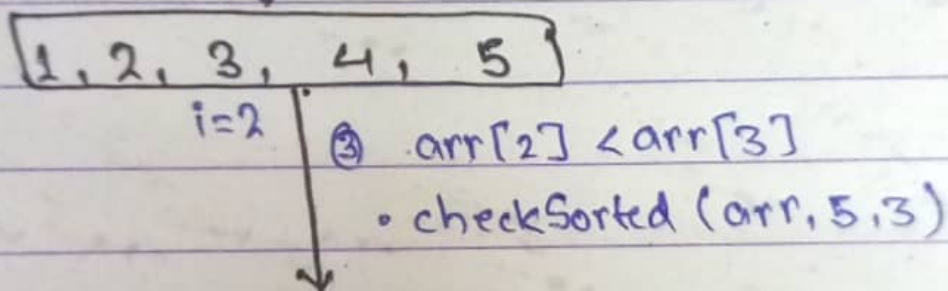 1, 2, 3, 4, 5
i=2
③ arr[2] < arr[3]
• checkSorted (arr, 5, 3)